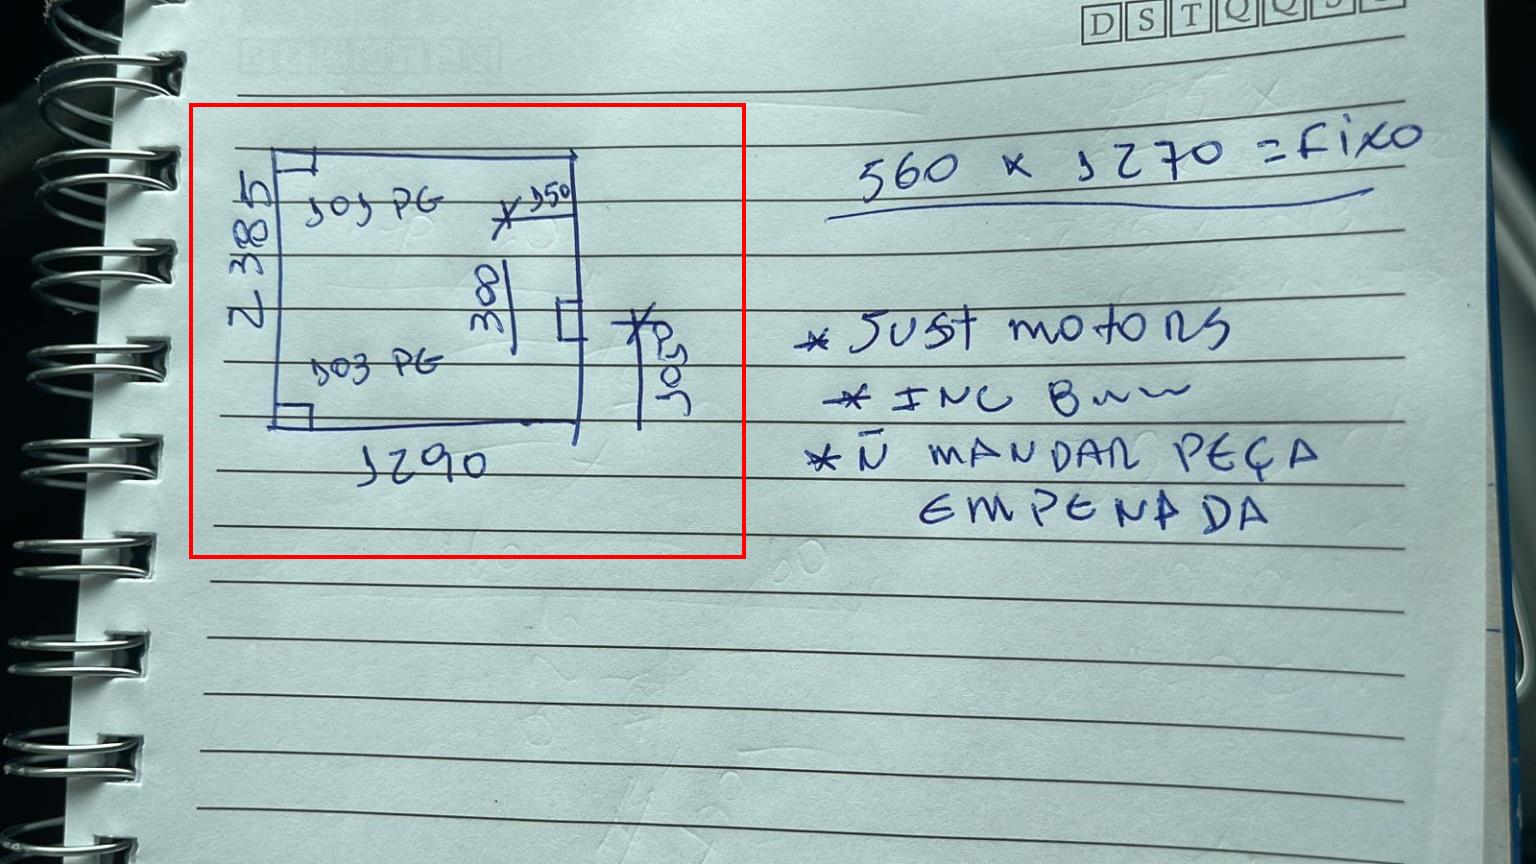 D S T Q Q S S
560 x 1270 = Fixo
2385
101 PG
150
308
1050
103 PG
1290
* JUST motors
* INC Bmw
* Ñ MANDAR PEÇA
EMPENADA